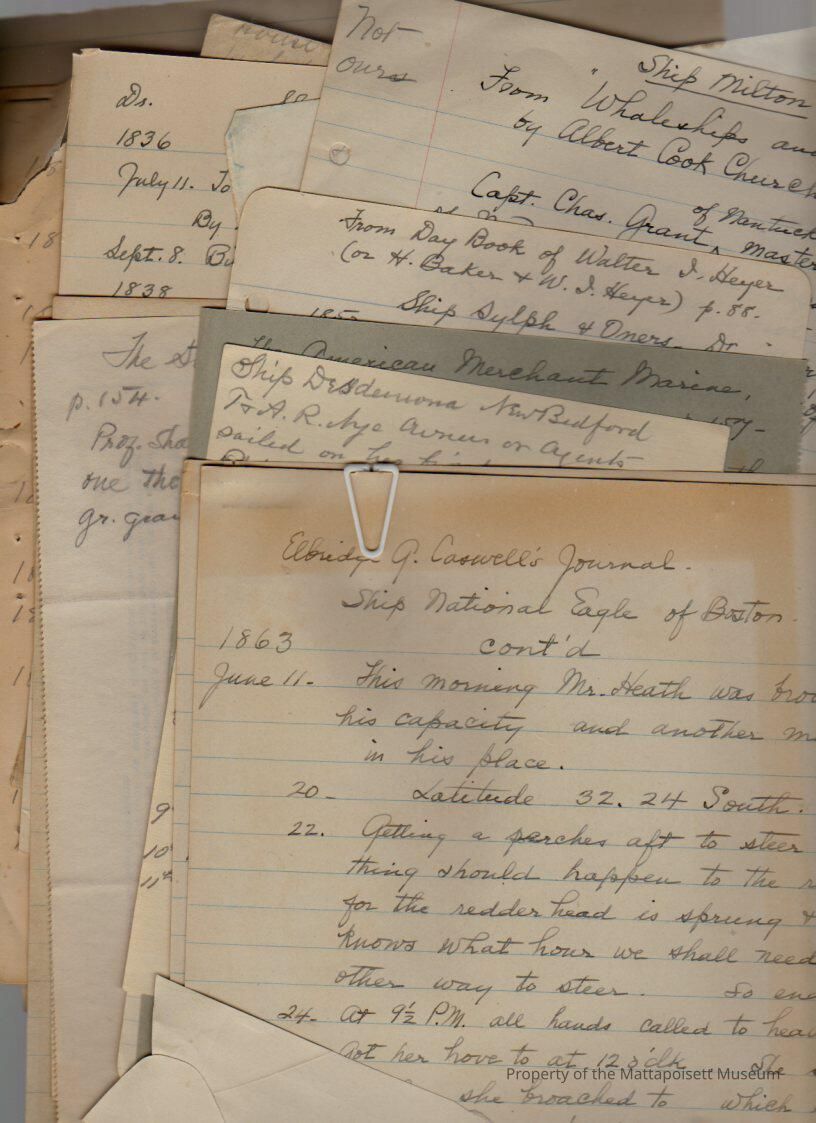 house
Not
ours
Ship Milton
From "Whaleships and
by Albert Cook Church
Capt. Chas. Grant, of Nantucket master
Dr.
1836
July 11. To
By
Sept. 8.
1838
From Day Book of Walter I. Heyer
(or H. Baker & W. I. Heyer) p. 88.
Ship Sylph & Oners Dr
The American Merchant Marine,
Ship Desdemona New Bedford
T & A. R. Nye Owners or agents
sailed on her
The
p. 154.
Prof. Sha
one tho
gr. gran
9
10
11
Elbridge G. Caswell's Journal.
Ship National Eagle of Boston.
1863 cont'd
June 11- This morning Mr. Heath was bro
his capacity and another m
in his place.
20- Latitude 32. 24 South.
22. Getting a perches aft to steer
thing should happen to the r
for the redder head is sprung &
knows what hour we shall need
other way to steer. So en
24- At 9½ P.M. all hands called to hea
got her hove to at 12 o'clk She
she broached to which
Property of the Mattapoisett Museum